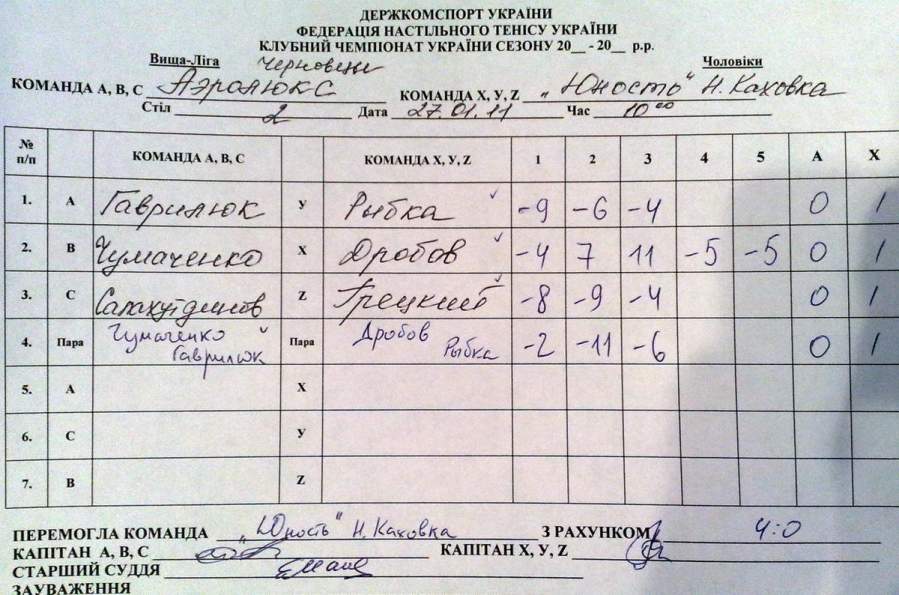 ДЕРЖКОМСПОРТ УКРАЇНИ
ФЕДЕРАЦІЯ НАСТІЛЬНОГО ТЕНІСУ УКРАЇНИ
КЛУБНИЙ ЧЕМПІОНАТ УКРАЇНИ СЕЗОНУ 20__ - 20__ р.р.
Вища-Ліга Черновцы Чоловіки
КОМАНДА А, В, С Аэролюкс КОМАНДА Х, У, Z "Юность" Н. Каховка
Стіл 2 Дата 27.01.11 Час 10 00
№ п/п КОМАНДА А, В, С КОМАНДА Х, У, Z 1 2 3 4 5 А Х
1. А Гаврилюк У Рыбка -9 -6 -4 0 1
2. В Чумаченко Х Дробов -4 7 11 -5 -5 0 1
3. С Салахутдинов Z Грецкий -8 -9 -4 0 1
4. Пара Чумаченко Гаврилюк Пара Дробов Рыбка -2 -11 -6 0 1
5. А Х
6. С У
7. В Z
ПЕРЕМОГЛА КОМАНДА "Юность" Н. Каховка З РАХУНКОМ 4:0
КАПІТАН А, В, С КАПІТАН Х, У, Z
СТАРШИЙ СУДДЯ
ЗАУВАЖЕННЯ